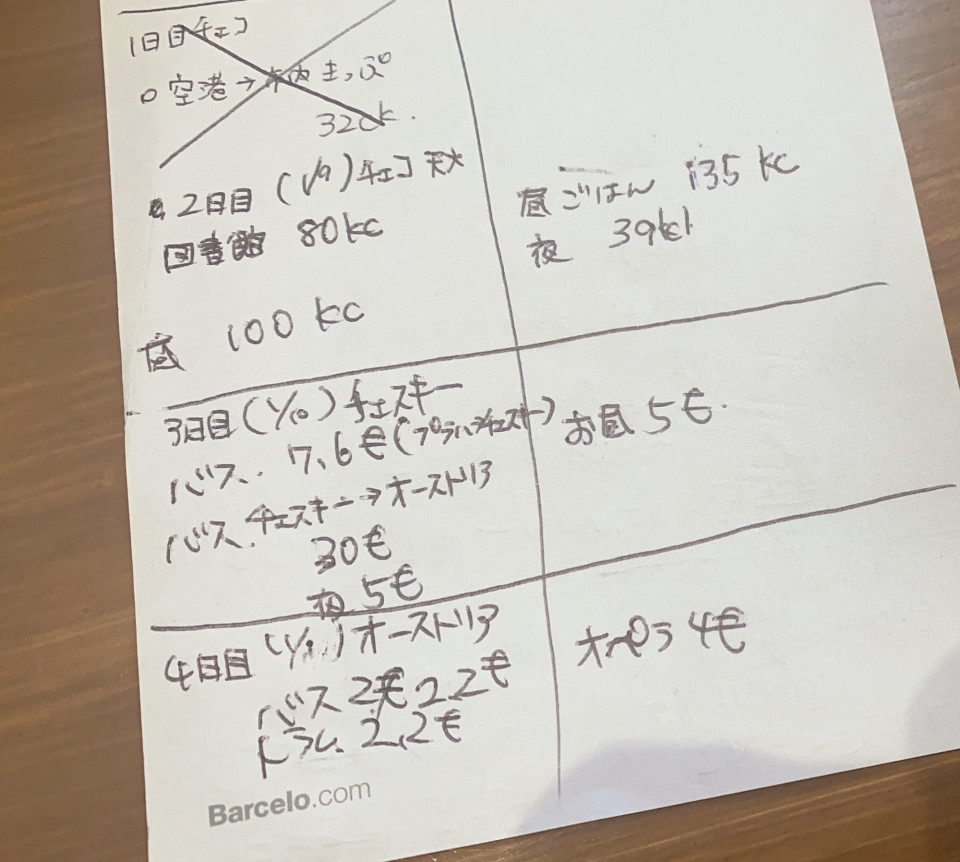 1日目チェコ
空港→市内まっぷ
320k.
2日目 (1/9) チェコ
図書館 80kc
昼 100 kc
昼ごはん 135 kc
夜 39kc
3日目 (1/10) チェスキー
バス. 7,6€ (プラハ→チェスキー)
バス. チェスキー→オーストリア
30€
夜 5€
お昼 5€.
4日目 (1/11) オーストリア
バス 2€ 2.2€
トラム 2,2€
オペラ 4€
Barcelo.com